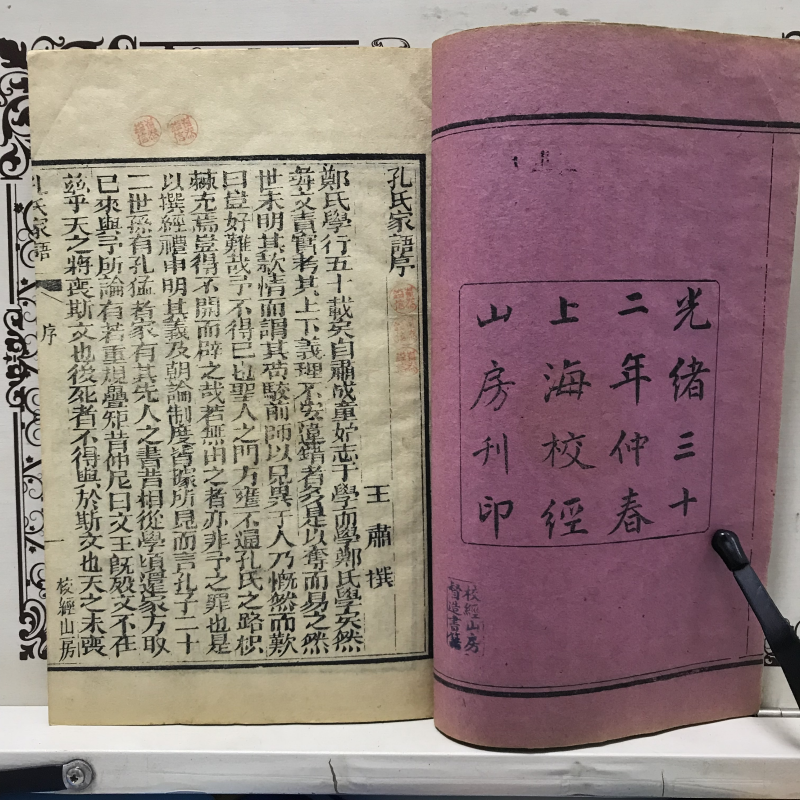 光緒三十
二年仲春
上海校經
山房刊印
校經山房
督造書籍
孔氏家語序
王肅撰
鄭氏學行五十載矣自肅成童始志于學而學鄭氏學矣然
尋文責實考其上下義理不安違錯者多是以奪而易之然
世未明其款情而謂其苟駮前師以見異于人乃慨然而歎
曰豈好難哉予不得已也聖人之門方壅不通孔氏之路枳
棘充焉豈得不開而辟之哉若無由之者亦非予之罪也是
以撰經禮申明其義及朝論制度皆據所見而言孔子二十
二世孫有孔猛者家有其先人之書昔相從學頃還家方取
已來與予所論有若重規疊矩昔仲尼曰文王旣歿文不在
茲乎天之將喪斯文也後死者不得與於斯文也天之未喪
孔氏家語
序
一
校經山房